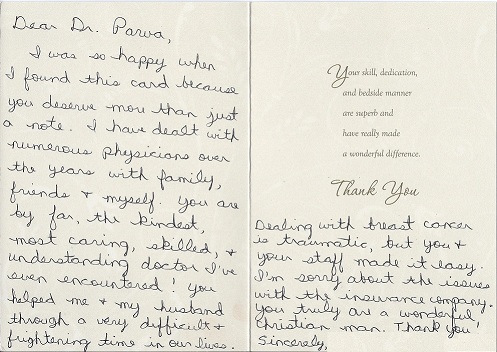 Dear Dr. Parva,
I was so happy when
I found this card because
you deserve more than just
a note. I have dealt with
numerous physicians over
the years with family,
friends & myself. You are
by far, the kindest,
most caring, skilled, &
understanding doctor I've
even encountered! You
helped me & my husband
through a very difficult &
frightening time in our lives.
Your skill, dedication,
and bedside manner
are superb and
have really made
a wonderful difference.
Thank You
Dealing with breast cancer
is traumatic, but you &
your staff made it easy.
I'm sorry about the issues
with the insurance company.
You truly are a wonderful
christian man. Thank you!
Sincerely,